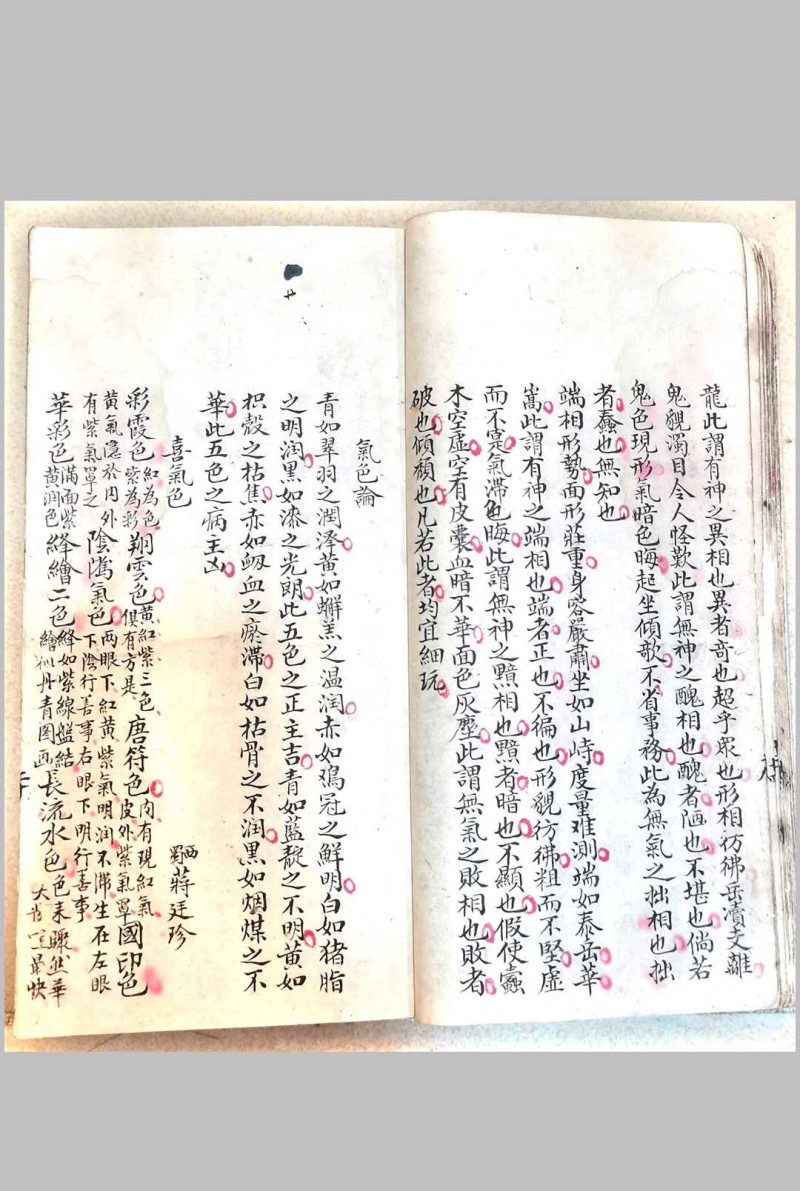 龍此謂有神之異相也異者奇也超乎眾也形相彷彿岳瀆支離
鬼貌濁目令人怪歎此謂無神之醜相也醜者陋也不堪也倘若
鬼色現形氣暗色晦起坐傾欹不省事務此為無氣之拙相也拙
者蠢也無知也
端相形勢面形莊重身容嚴肅坐如山峙度量难測端如泰岳華
嵩此謂有神之端相也端者正也不徧也形貌彷彿粗而不堅虛
而不寔氣滯色晦此謂無神之黯相也黯者暗也不顯也假使蠹
木空虛空有皮囊血暗不華面色灰塵此謂無氣之敗相也敗者
破也傾頹也凡若此者均宜細玩
氣色論
青如翠羽之潤澤黃如蠏羔之温润赤如鳮冠之鮮明白如猪脂
之明润黑如漆之光朗此五色之正主吉青如藍靛之不明黄如
枳殼之枯焦赤如衂血之瘀滞白如枯骨之不润黑如烟煤之不
華此五色之病主凶
喜氣色
蜀西蔣廷珍
彩霞色紅為色紫為彩翔雲色黃紅紫三色俱有方是唐符色内有現紅氣皮外紫氣罩國印色
黃氣隐於内外有紫氣罩之陰隲氣色两眼下紅黄紫氣明润不滞生在左眼下陰行善事右眼下明行善事
華彩色滿面紫黄润色絳繪二色絳如紫線盤結繪似丹青图画長流水色色来驟然華